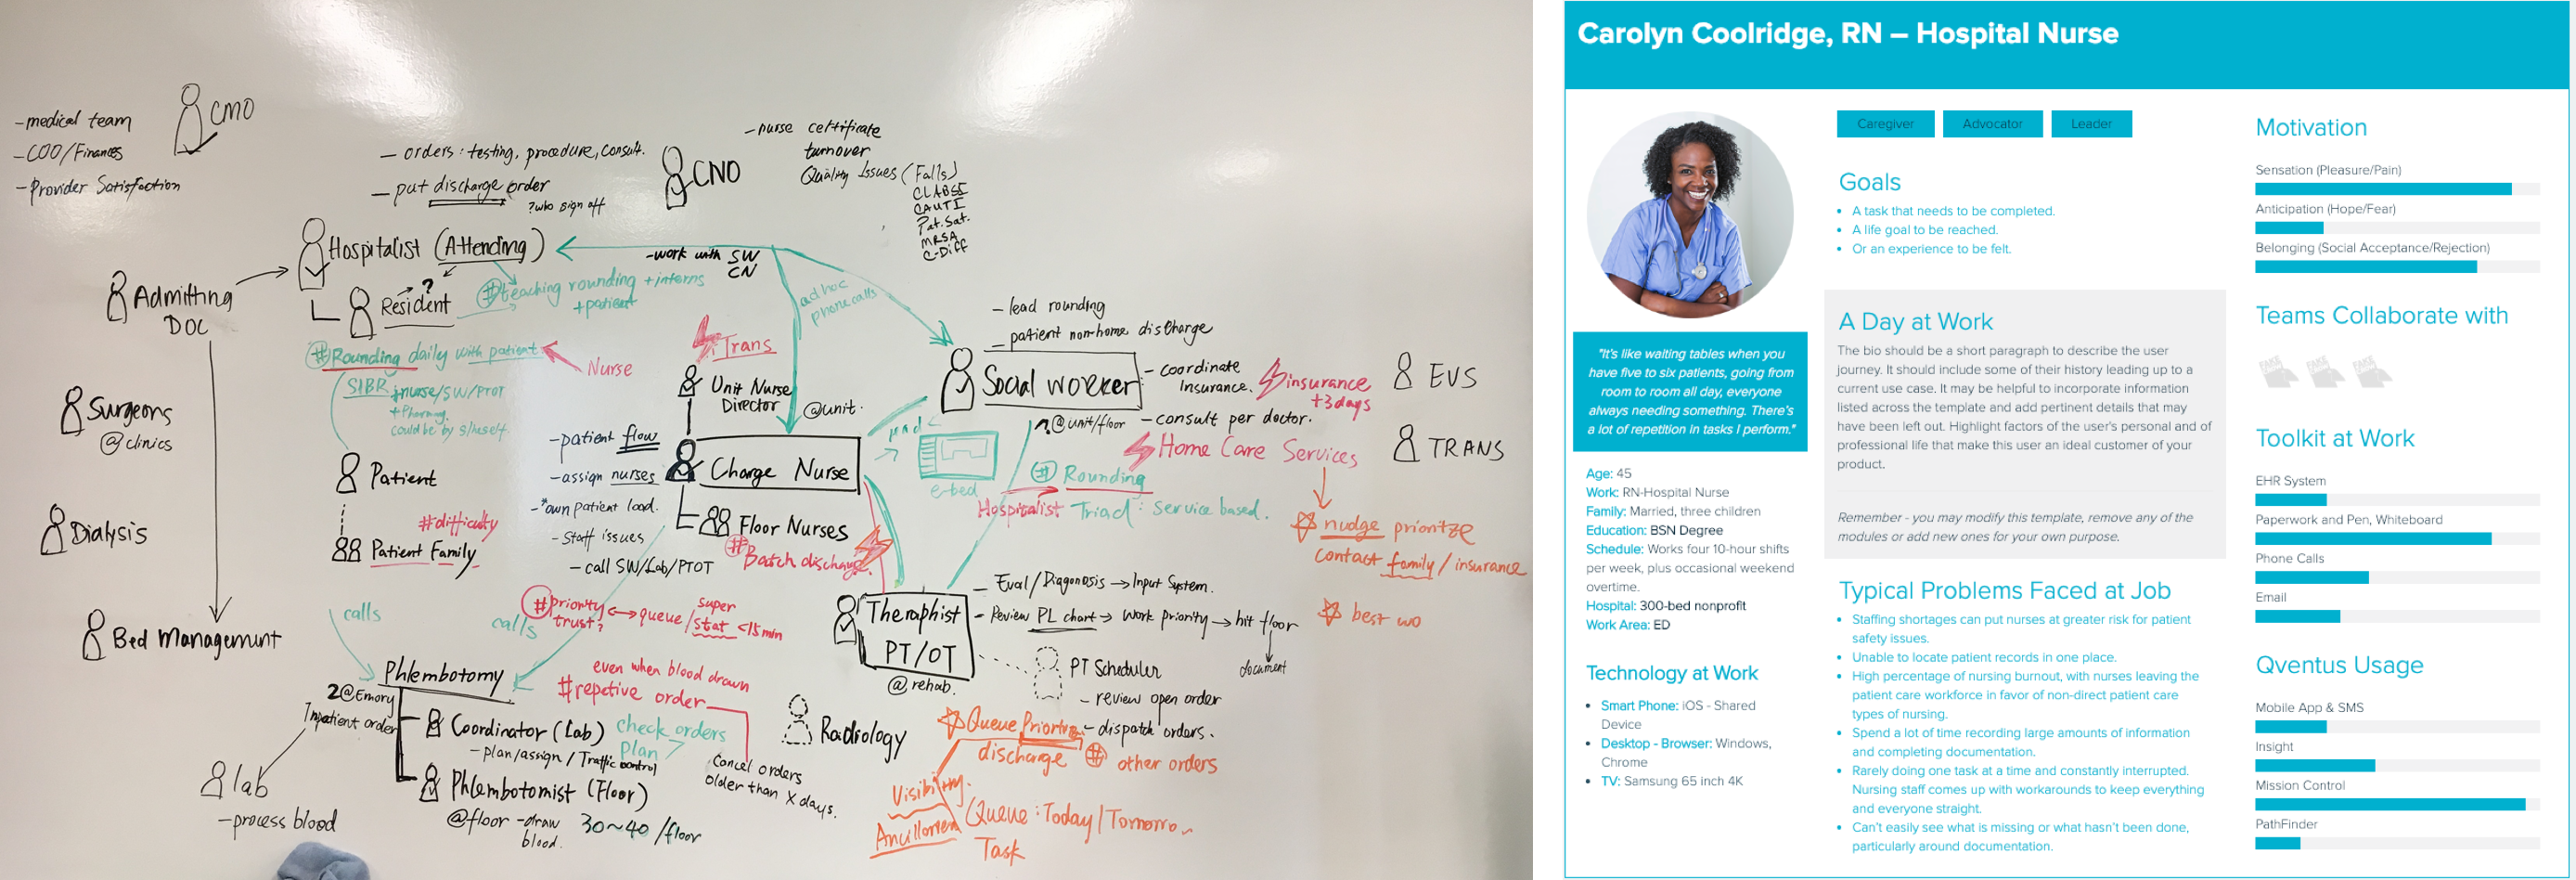 CMO
-medical team
-COO/Finances
-Provider Satisfaction
- orders: testing, procedure, consult.
- put discharge order
?who sign off
CNO
-nurse certificate
turnover
Quality Issues (Falls)
CLABSI
CAUTI
Pat. Sat.
MRSA
C-Diff
Hospitalist (Attending)
-work with SW
CN
?
Resident
# teaching rounding +interns
+patient
ad hoc
phone calls
Admitting
DOC
# Rounding daily with patient
Nurse
SIBR +nurse/SW/PTOT
+Pharmacy
could be by s/heself.
Trans
Unit Nurse
Director
@unit.
- lead rounding
- patient non-home discharge
Social worker
- coordinate
Insurance.
insurance
+3days
@unit/floor
- consult per doctor.
Home Care Services
EVS
TRANS
Surgeons
@clinics
-patient flow
-assign nurses
-*own patient load.
- Staff issues
- call SW/Lab/PTOT
Charge Nurse
Floor Nurses
# Batch discharge
e-bed
# Rounding
Hospitalist Triad: Service based.
nudge prioritze
contact family / insurance
best wo
Patient
#difficulty
Patient Family
Dialysis
Bed Management
calls
calls
# priority
trust?
queue/
super
stat <15min
Theraphist
PT/OT
@rehab.
- Eval/Diagonosis → Input System.
- Review PL chart → Work Priority → hit floor
document
PT Scheduler
- review open order
- dispatch orders.
Phlembotomy
2@Emory
Inpatient order
even when blood drawn
# repetive order
Coordinator (Lab)
- plan/assign/Traffic control
check orders
plan
Cancel orders
older than X days.
Radiology
Phlembotomist (Floor)
@floor -draw
blood.
30~40 /floor
lab
-process blood
Queue
discharge # other orders
Visibility
Queue: Today/
Task
Carolyn Coolridge, RN – Hospital Nurse
"It's like waiting tables when you
have five to six patients, going from
room to room all day, everyone
always needing something. There's
a lot of repetition in tasks I perform."
Age: 45
Work: RN-Hospital Nurse
Family: Married, three children
Education: BSN Degree
Schedule: Works four 10-hour shifts
per week, plus occasional weekend
overtime.
Hospital: 300-bed nonprofit
Work Area: ED
Technology at Work
Smart Phone: iOS - Shared
Device
Desktop - Browser: Windows,
Chrome
TV: Samsung 65 inch 4K
Caregiver
Advocator
Leader
Goals
A task that needs to be completed.
A life goal to be reached.
Or an experience to be felt.
A Day at Work
The bio should be a short paragraph to describe the user
journey. It should include some of their history leading up to a
current use case. It may be helpful to incorporate information
listed across the template and add pertinent details that may
have been left out. Highlight factors of the user's personal and of
professional life that make this user an ideal customer of your
product.
Remember - you may modify this template, remove any of the
modules or add new ones for your own purpose.
Typical Problems Faced at Job
Staffing shortages can put nurses at greater risk for patient
safety issues.
Unable to locate patient records in one place.
High percentage of nursing burnout, with nurses leaving the
patient care workforce in favor of non-direct patient care
types of nursing.
Spend a lot of time recording large amounts of information
and completing documentation.
Rarely doing one task at a time and constantly interrupted.
Nursing staff comes up with workarounds to keep everything
and everyone straight.
Can't easily see what is missing or what hasn't been done,
particularly around documentation.
Motivation
Sensation (Pleasure/Pain)
Anticipation (Hope/Fear)
Belonging (Social Acceptance/Rejection)
Teams Collaborate with
FAKE FAKE FAKE
Toolkit at Work
EHR System
Paperwork and Pen, Whiteboard
Phone Calls
Email
Qventus Usage
Mobile App & SMS
Insight
Mission Control
PathFinder